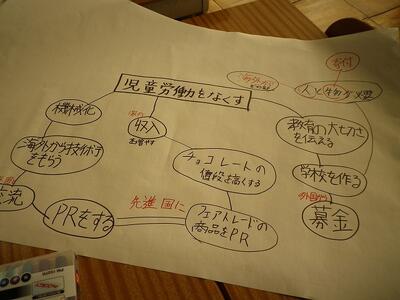 児童労働をなくす
寄付
海外から
人と物が運
機械化
収入
を増やす
教育の大切さ
を伝える
海外から技術者
をもらう
チョコレートの
値段を高くする
学校を作る
外国から
募金
交流
PRをする
先進国に
フェアトレードの
商品をPR